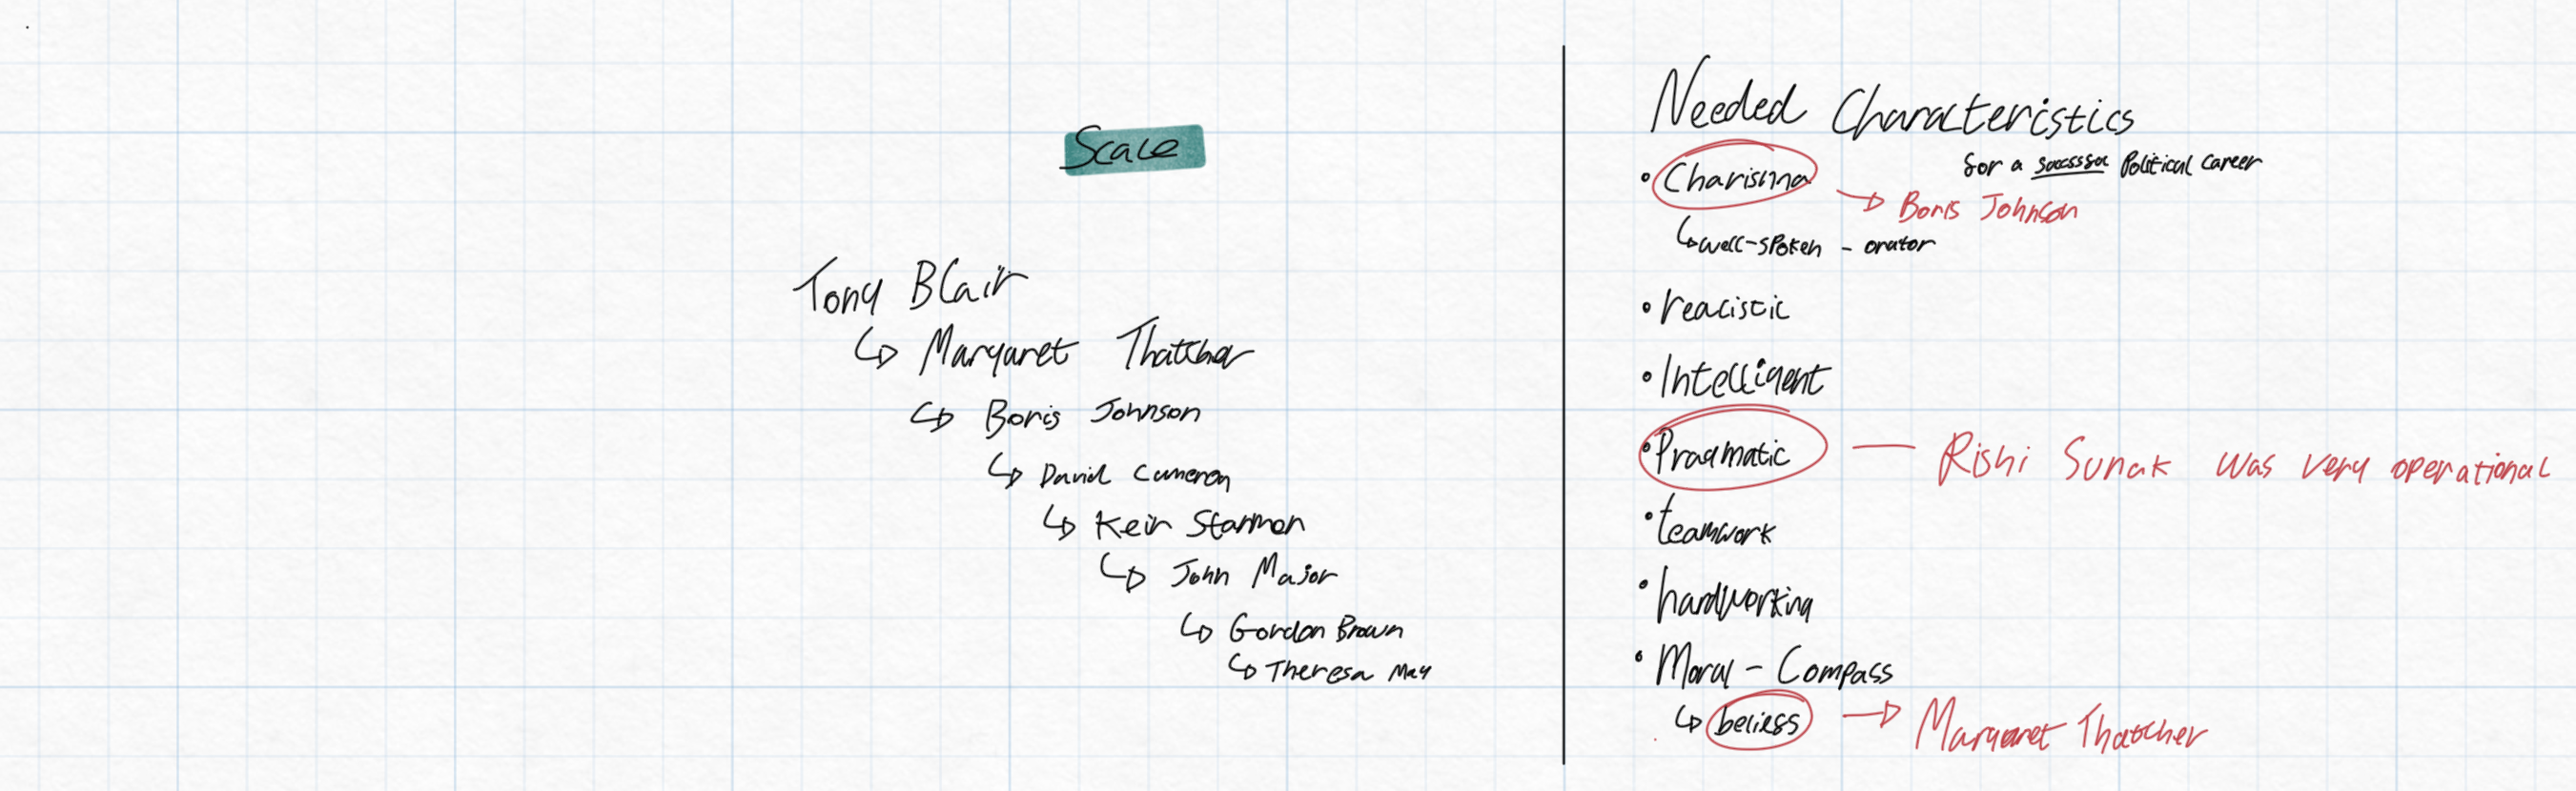 Scale
Tony Blair
↳ Margaret Thatcher
↳ Boris Johnson
↳ David Cameron
↳ Keir Starmer
↳ John Major
↳ Gordon Brown
↳ Theresa May
Needed Characteristics
for a successful Political Career
• Charisma → Boris Johnson
↳ well-spoken - orator
• realistic
• Intelligent
• Pragmatic — Rishi Sunak was very operational
• teamwork
• hardworking
• Moral - Compass
↳ beliefs → Margaret Thatcher